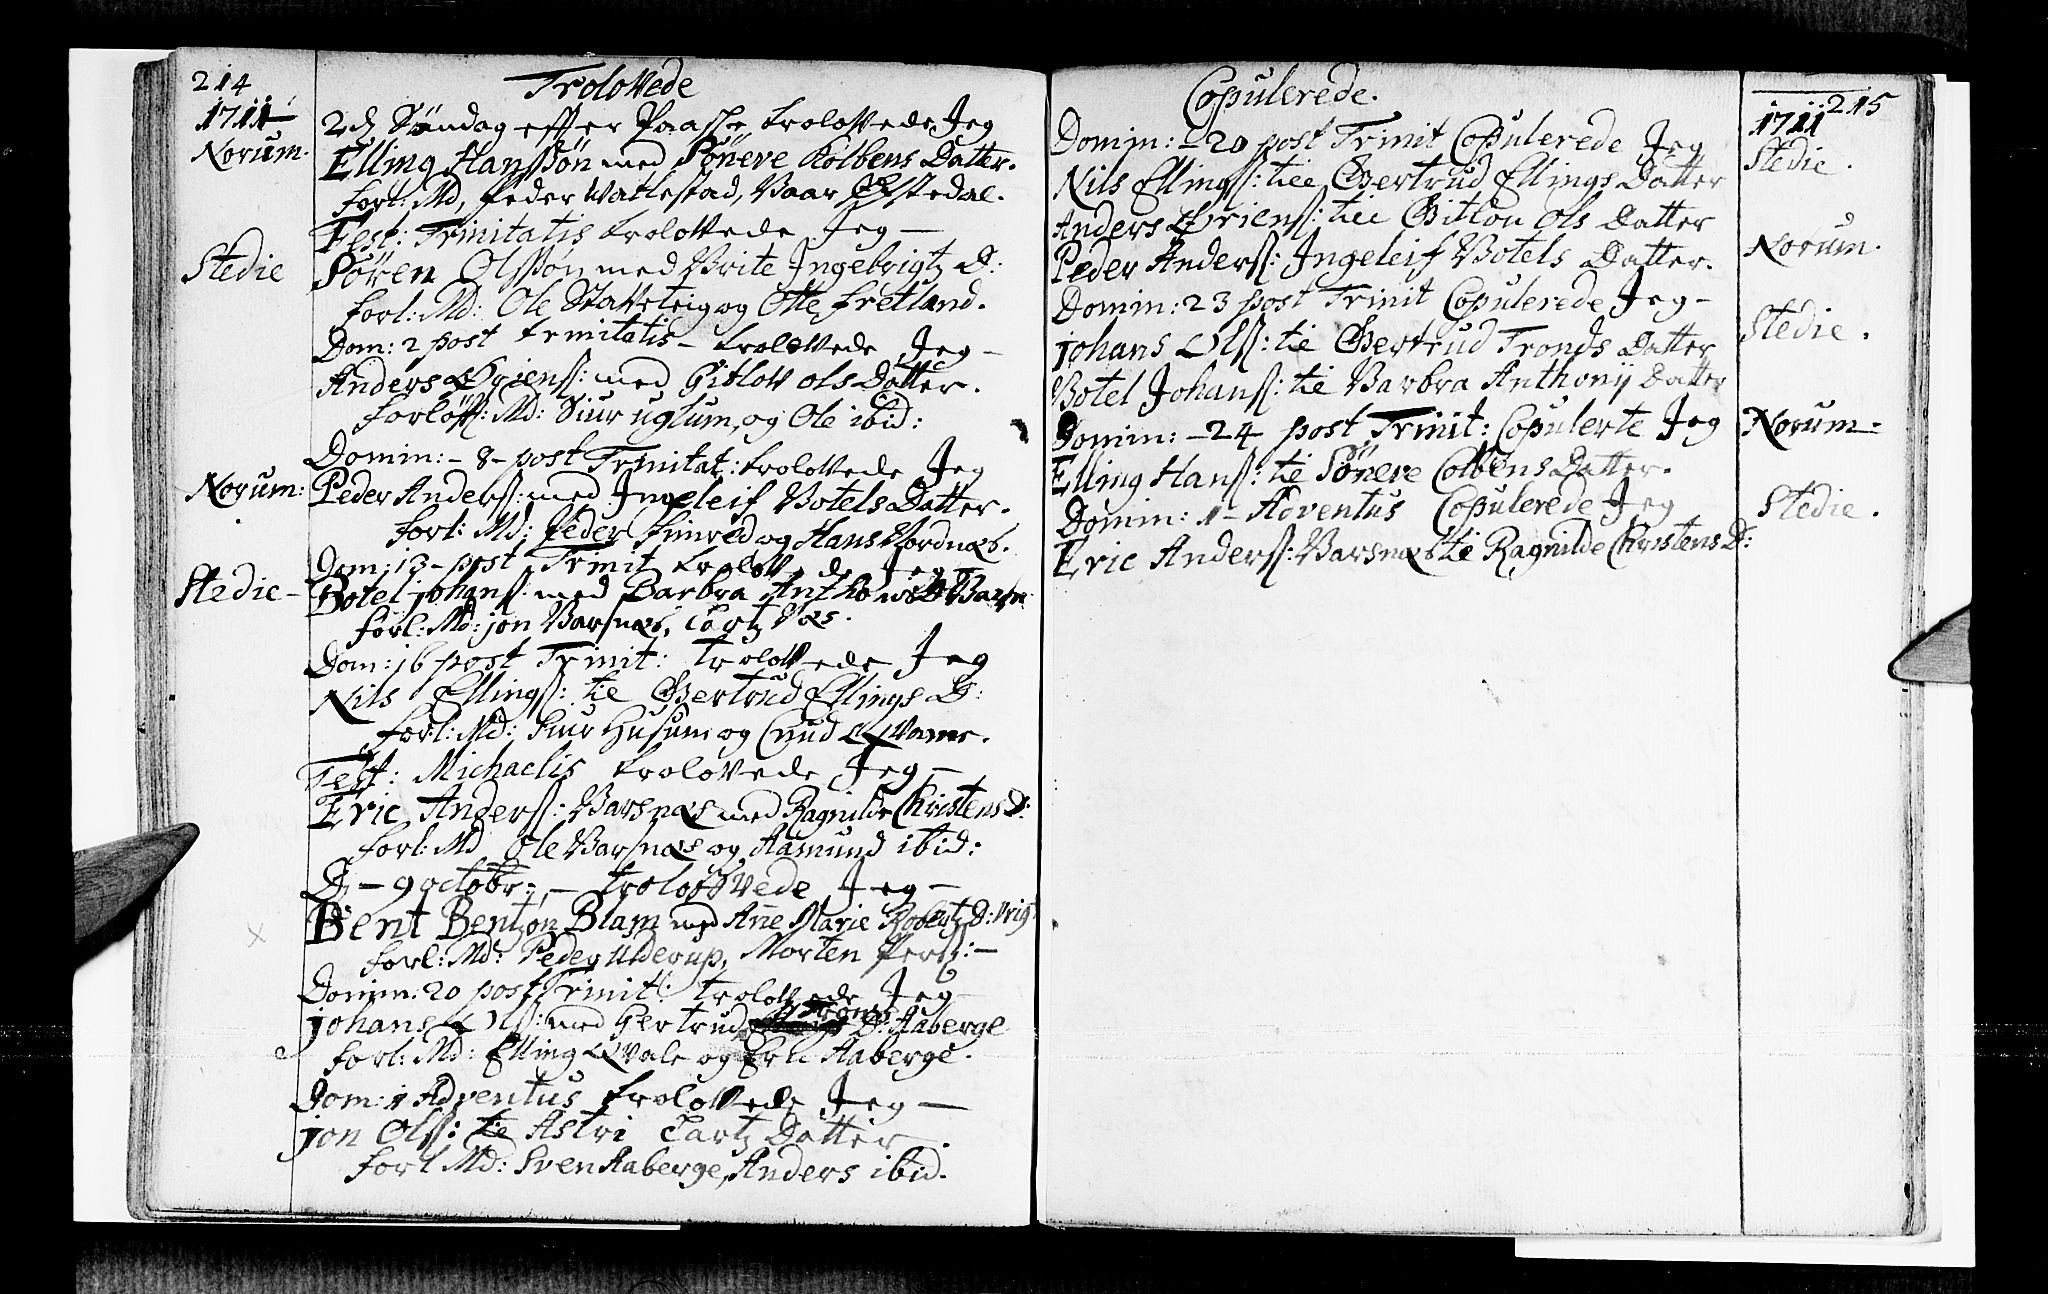 214
Trolovede
1711
2d Söndag effter Paaske trolovede Jeg
Norum.
Elling Hanssön med Söneve Kolbens Datter.
forl: Md, Peder Watlestad, Baar Øystedal.
Fest: Trinitatis trolovede Jeg —
Stedie
Sören Olssön med Brite Ingebrigtz D:
forl: Md: Ole Stavteig og Otte fretland.
Dom: 2 post trinitatis – trolovede Jeg –
Anders Ørienß: med Gitlov Ols Datter.
forlöß: Md: Siur uglum, og Ole ibid:
Domin: – 8 – post Trinitat: trolovede Jeg
Norum:
Peder Anderß: med Ingeleif Botels Datter.
forl: Md: Peder fimred og Hans Nordnæs.
Dom: 13 – post Trinit trolovede Jeg
Stedie –
Botel johanß: med Barbra
forl: Md: jon Barsnæs, Lartz Næs.
Dom: 16 post Trinit: trolovede Jeg
Nils Ellingß: til Giertrud Ellings D:
forl: Md: Siur Husum og Cnud Qvame.
Fest: Michaelis trolovede Jeg –
Eric Anderß: Barsnæs med Ragnilde Christens D:
forl: Md Ole Barsnæs og Aamund ibid:
D – 9 octobr: – trolovede Jeg –
Bent Bentzon Blam med Anne Marie Robertz D: Vrig
forl: Md: Peder Ulderup, Morten Perß: –
Domin: 20 post Trinit: trolovede Jeg
Tronds
johans Olß: med Gertrud D: Aaberge
forl: Md: Elling Qvale og Erli Aaberge.
Dom: 1 Adventus trolovede Jeg —
jon Olß: til Astri Lartz Datter.
forl Md: Sven Aaberge, Anders ibid.
Copulerede.
1711 215
Domin: – 20 post Trinit Copulerede Jeg
Stedie.
Nils Ellingß: til Giertrud Ellings Datter
Anders Ørienß: til Gitlou Ols Datter
Norum.
Peder Anderß: Ingeleif Botels Datter.
Domin: 23 post Trinit Copulerede Jeg –
Stedie.
johans Olß: til Giertrud Tronds Datter
Botel Johanß: til Barbra Anthonij Datter
Domin: – 24 post Trinit: Copulerte Jeg
Norum –
Elling Hanß: til Söneve Colbens Datter.
Domin: 1 – Adventus Copulerede Jeg
Stedie.
Eric Anderß: Barsnæs til Ragnilde Christens D: